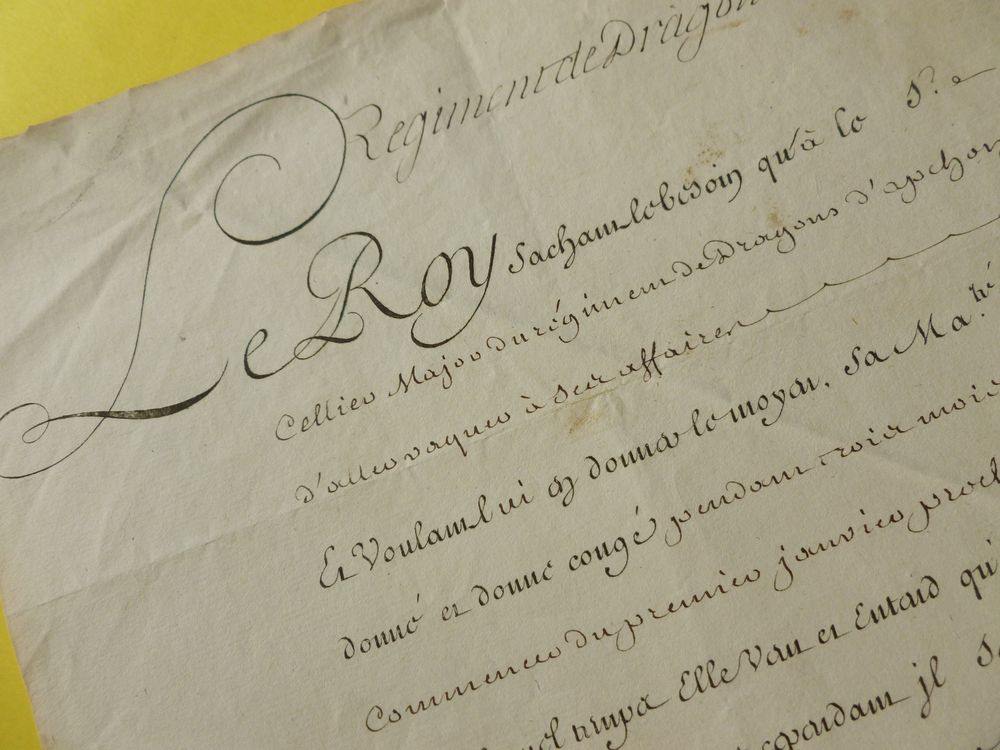 Regiment de Dragon
Le Roy Sachant le besoin qu'à le S.r
Cellier Major du régiment de Dragons d'apchon
d'aller vaquer à Ses affaires
Et Voulant lui en donner le moyen, Sa Ma.té
donné et donne congé pendant trois mois
Commencer du premier janvier proch
tems Elle Veut et Entend qu'
cependant jl